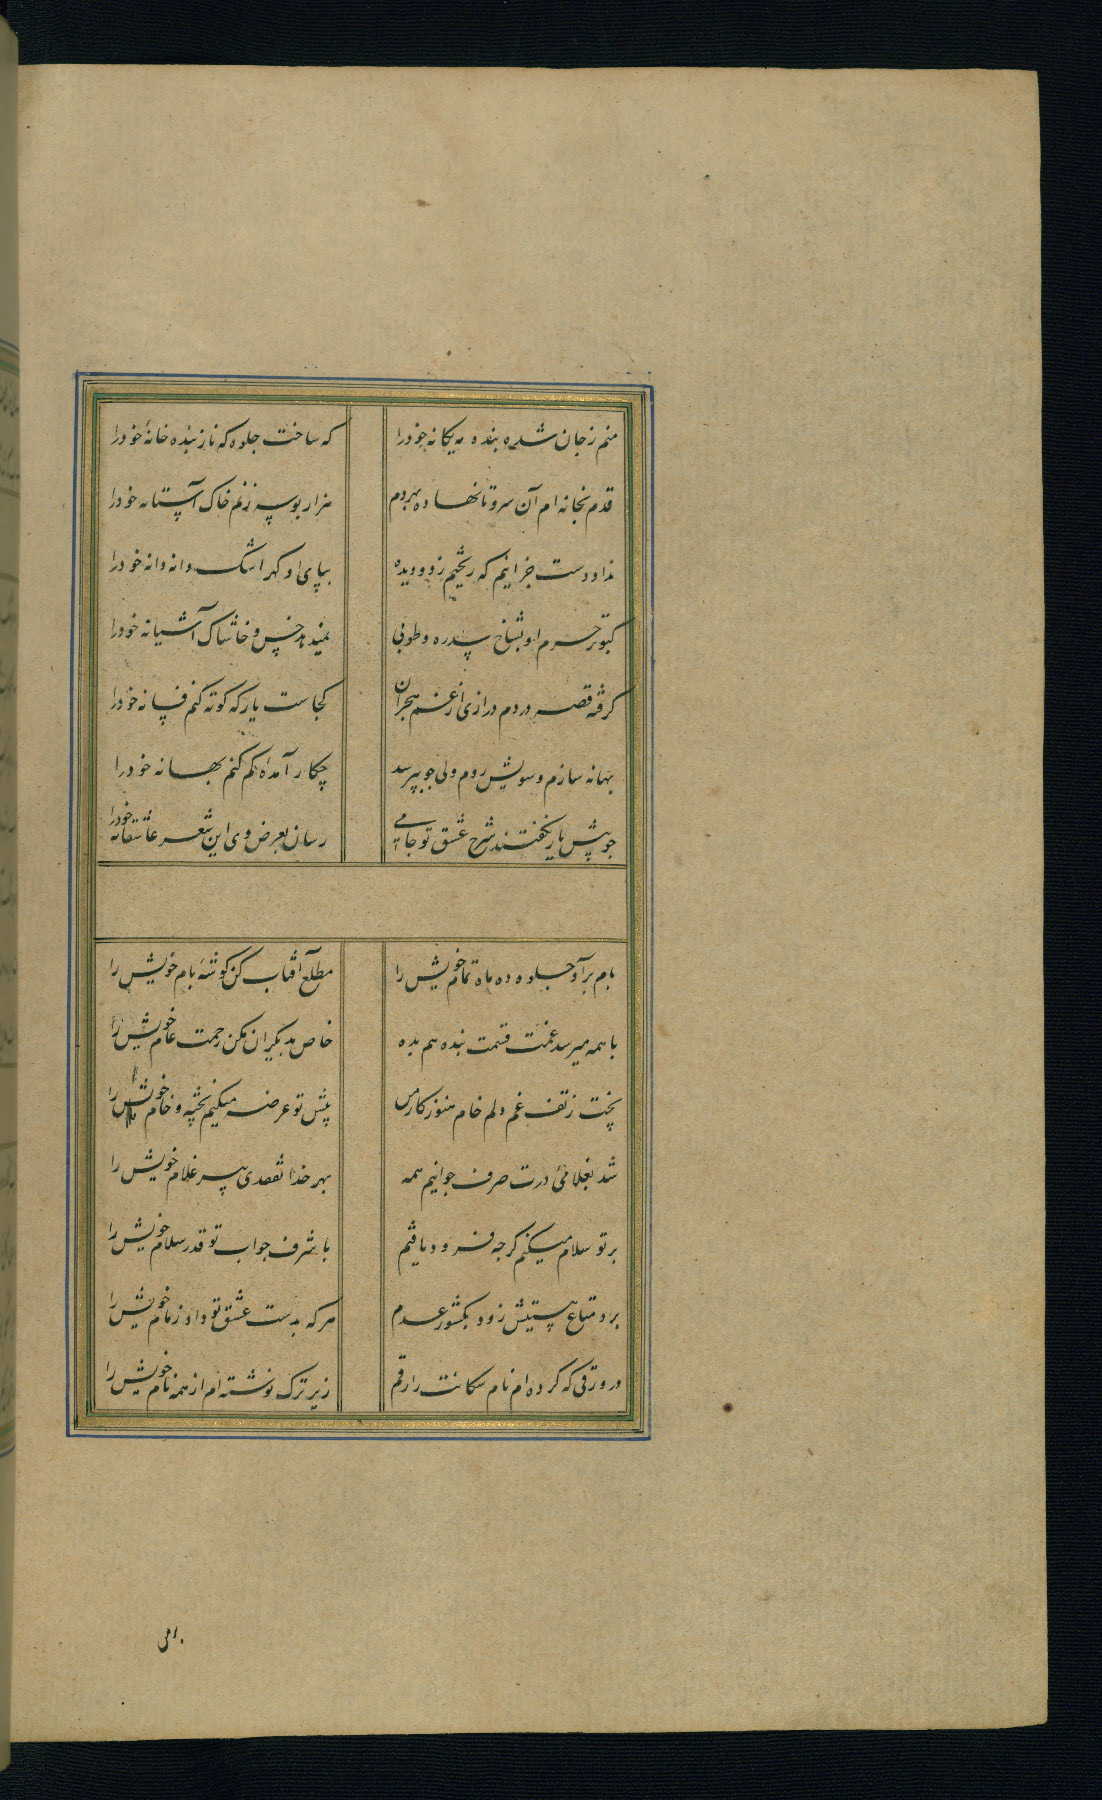 منم زجان شده بنده مه یکانه خودرا که ساخت جلوه که ناز بنده خانهٔ خودرا
قدم بخانه ام آن سرو تا نهاده بهردم هزار بوسه زنم خاک آستانه خودرا
نداد دست جز اینم که ریختیم زدو دیده بپای او گهر اشک دانه دانه خودرا
کبوتر حرم او بشاخ سدره و طوبی نمیدهد خس و خاشاک آشیانه خودرا
گرفته قصه دردم درازی از غم هجران کجاست یار که کوته کنم فسانه خودرا
بهانه سازم و سویش روم ولی جو بپرسد چکار آمدهٔ گم کنم بهانه خودرا
جو پیش یار نکفتند شرح عشق تو جامی رسان بعرض وی این شعر عاشقانه خودرا
بام برآ و جلوه ده ماه تمام خویش را مطلع آفتاب کن کوشهٔ بام خویش را
با همه میرسد غمت قسمت بنده هم بده خاص بدیکران مکن رحمت عام خویش را
پخت زتف غم دلم خام هنوز کار من پیش تو عرضه میکنیم پخته و خام خویش را
شد بغلامی درت صرف جوانیم همه بهر خدا تفقدی پیر غلام خویش را
بر تو سلام میکنم کرجه فرود یافتیم با شرف جواب تو قدر سلام خویش را
برد متاع هستیش زود بکشور عدم هرکه بدست عشق تو داد زمام خویش را
در ورقی که کرده ام نام سکانت را رقم زیرترک نوشته ام از همه نام خویش را